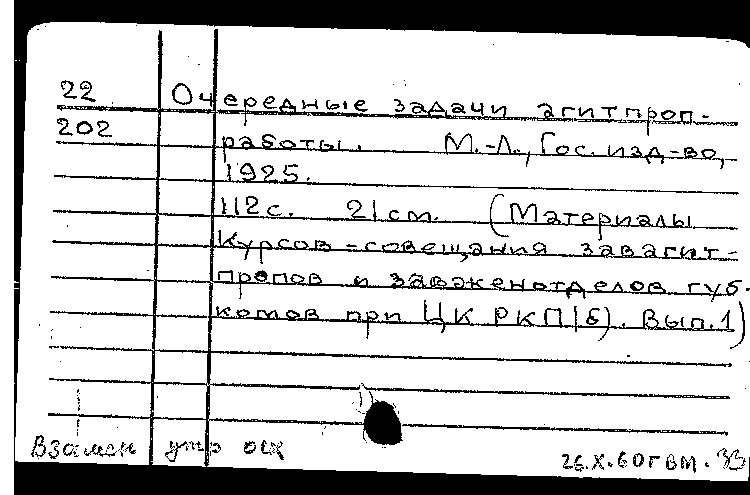 22 Очередные задачи агитпроп-
202 работы. М.-Л., Гос. изд-во,
1925.
112 с. 21 см. (Материалы
курсов-совещания завагит-
пропов и завженотделов губ-
комов при ЦК РКП(б). Вып. 1)
Взамен утр
26.X.60г ВМ. 33